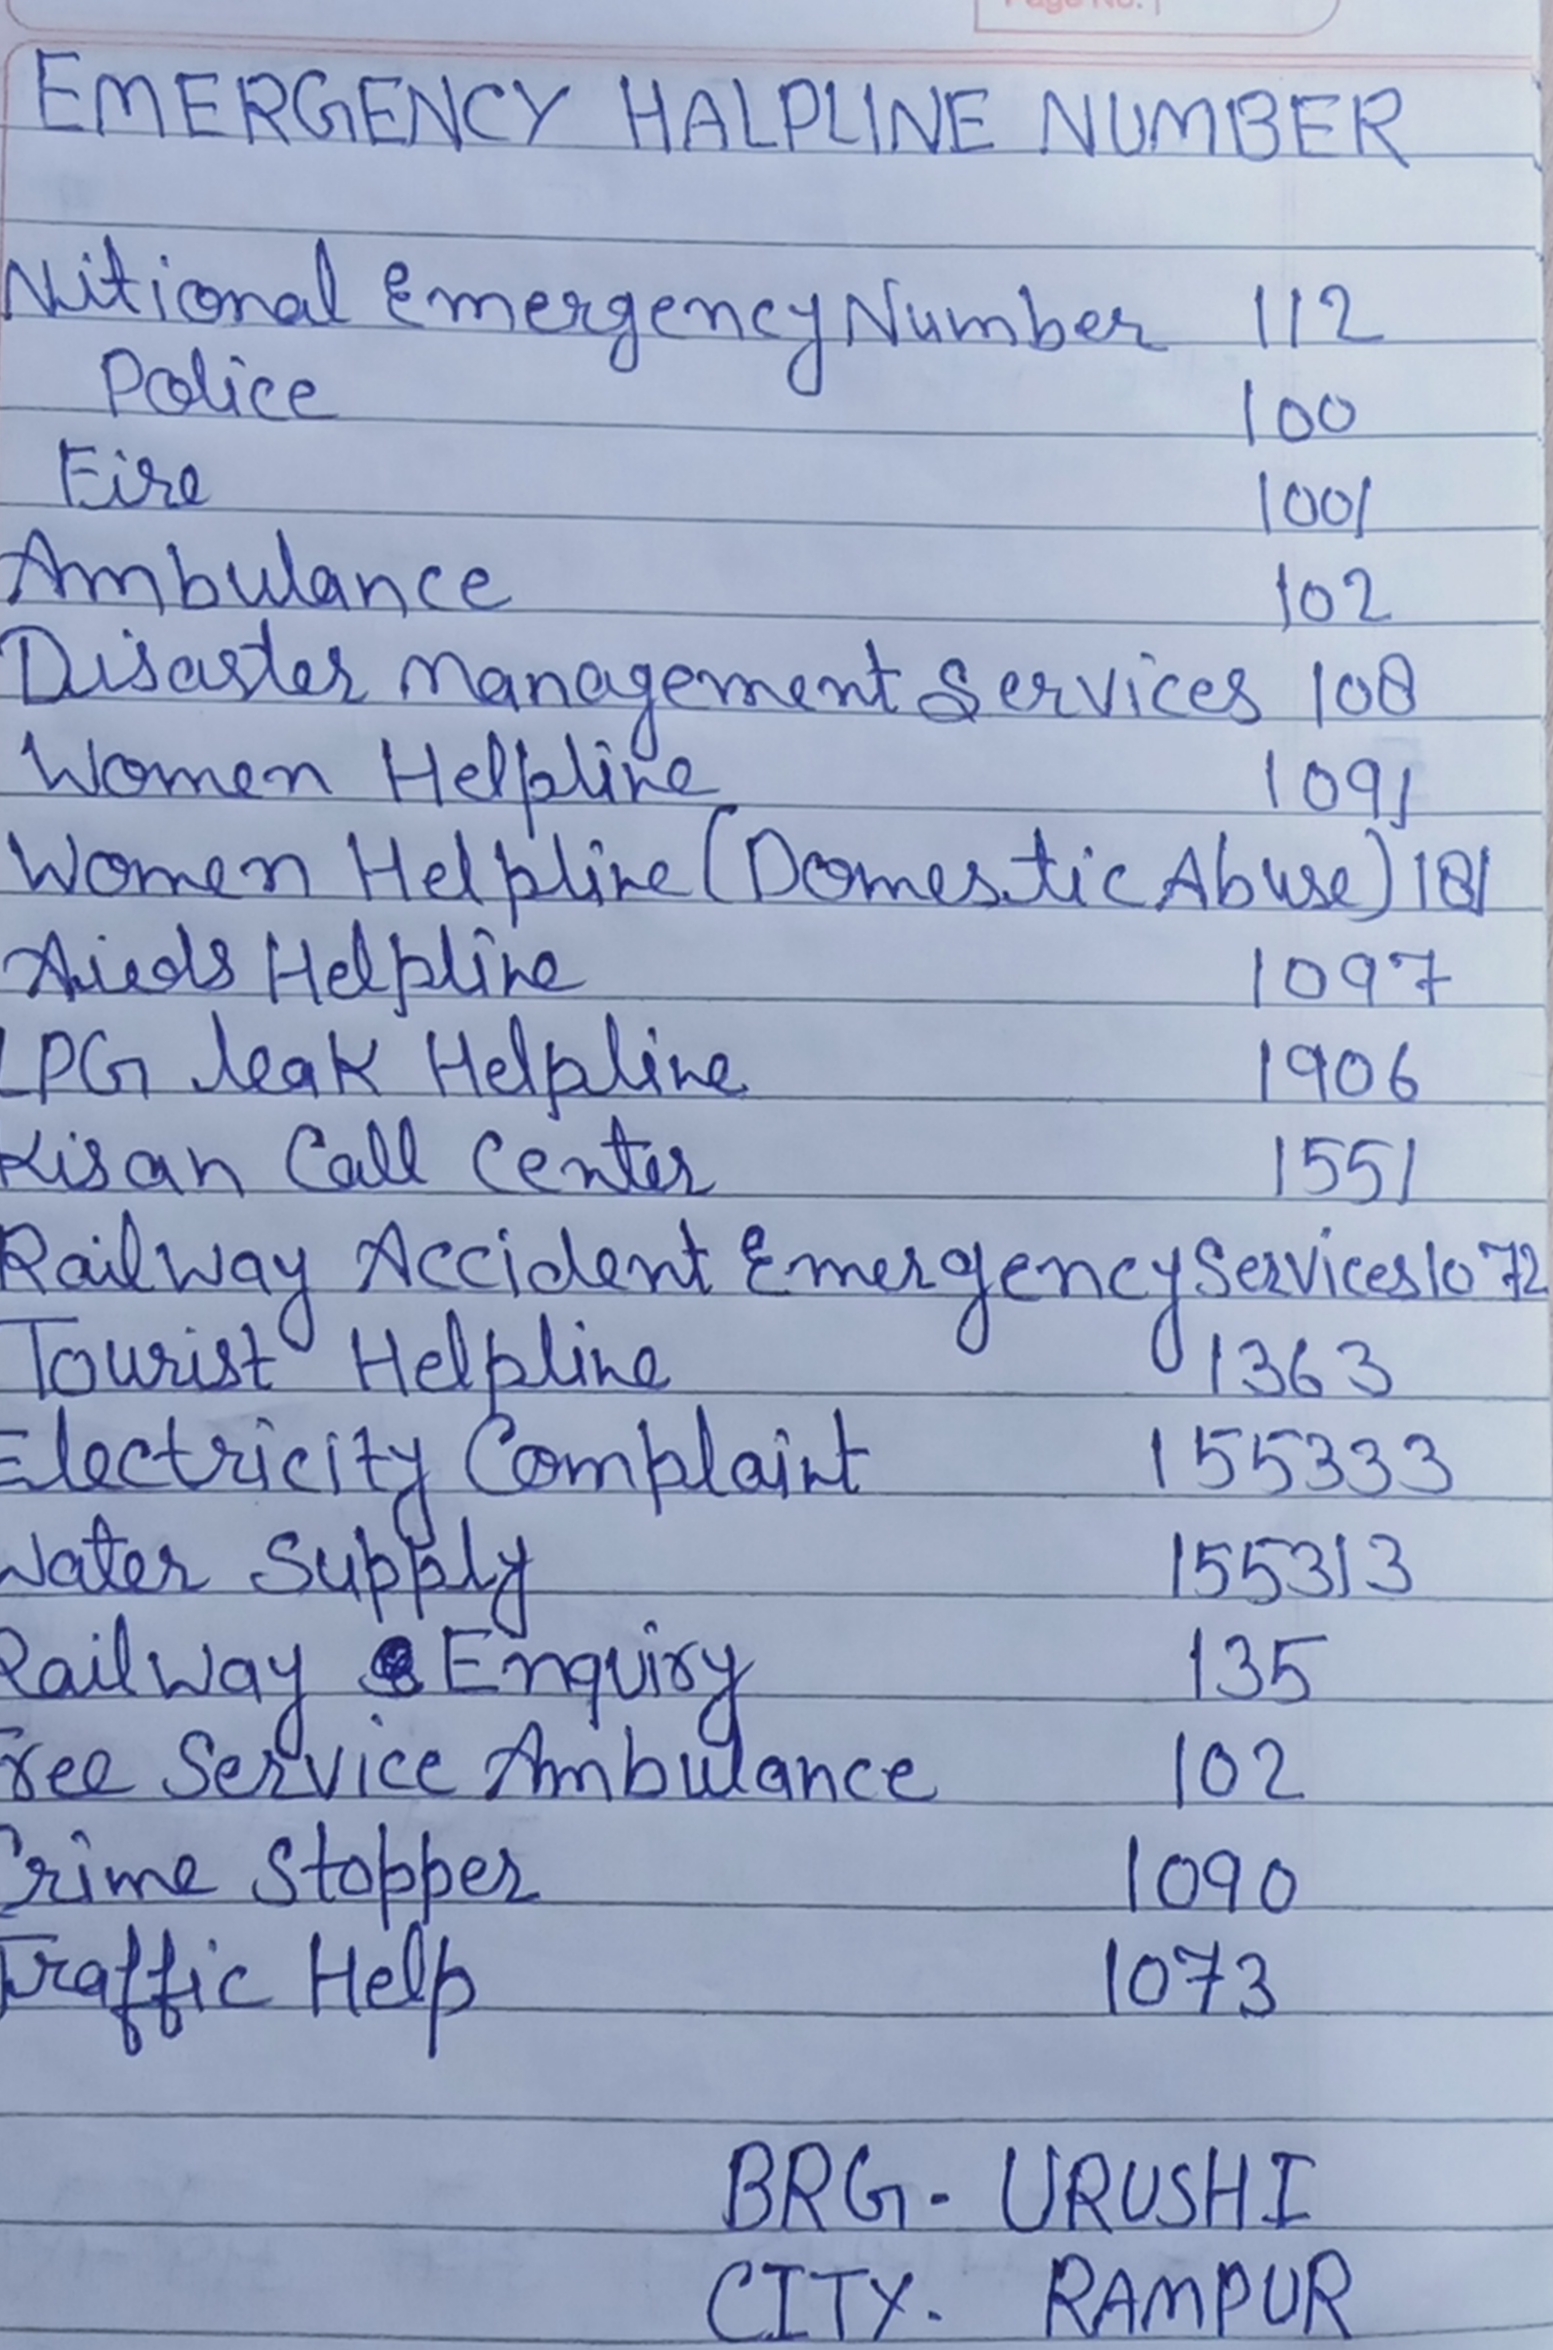 Page No.
EMERGENCY HALPLINE NUMBER
Nitional Emergency Number 112
Police 100
Eire 1001
Ambulance 102
Disaster Management Services 108
Women Helpline 1091
Women Helpline (Domestic Abuse) 181
Aieds Helpline 1097
LPG leak Helpline 1906
Kisan Call Center 1551
Railway Accident Emergency Services 1072
Tourist Helpline 1363
Electricity Complaint 155333
Water Supply 155313
Railway Enquiry 135
Free Service Ambulance 102
Crime Stopper 1090
Traffic Help 1073
BRG- URUSHI
CITY. RAMPUR